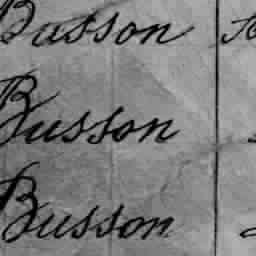 Busson
Busson
Busson